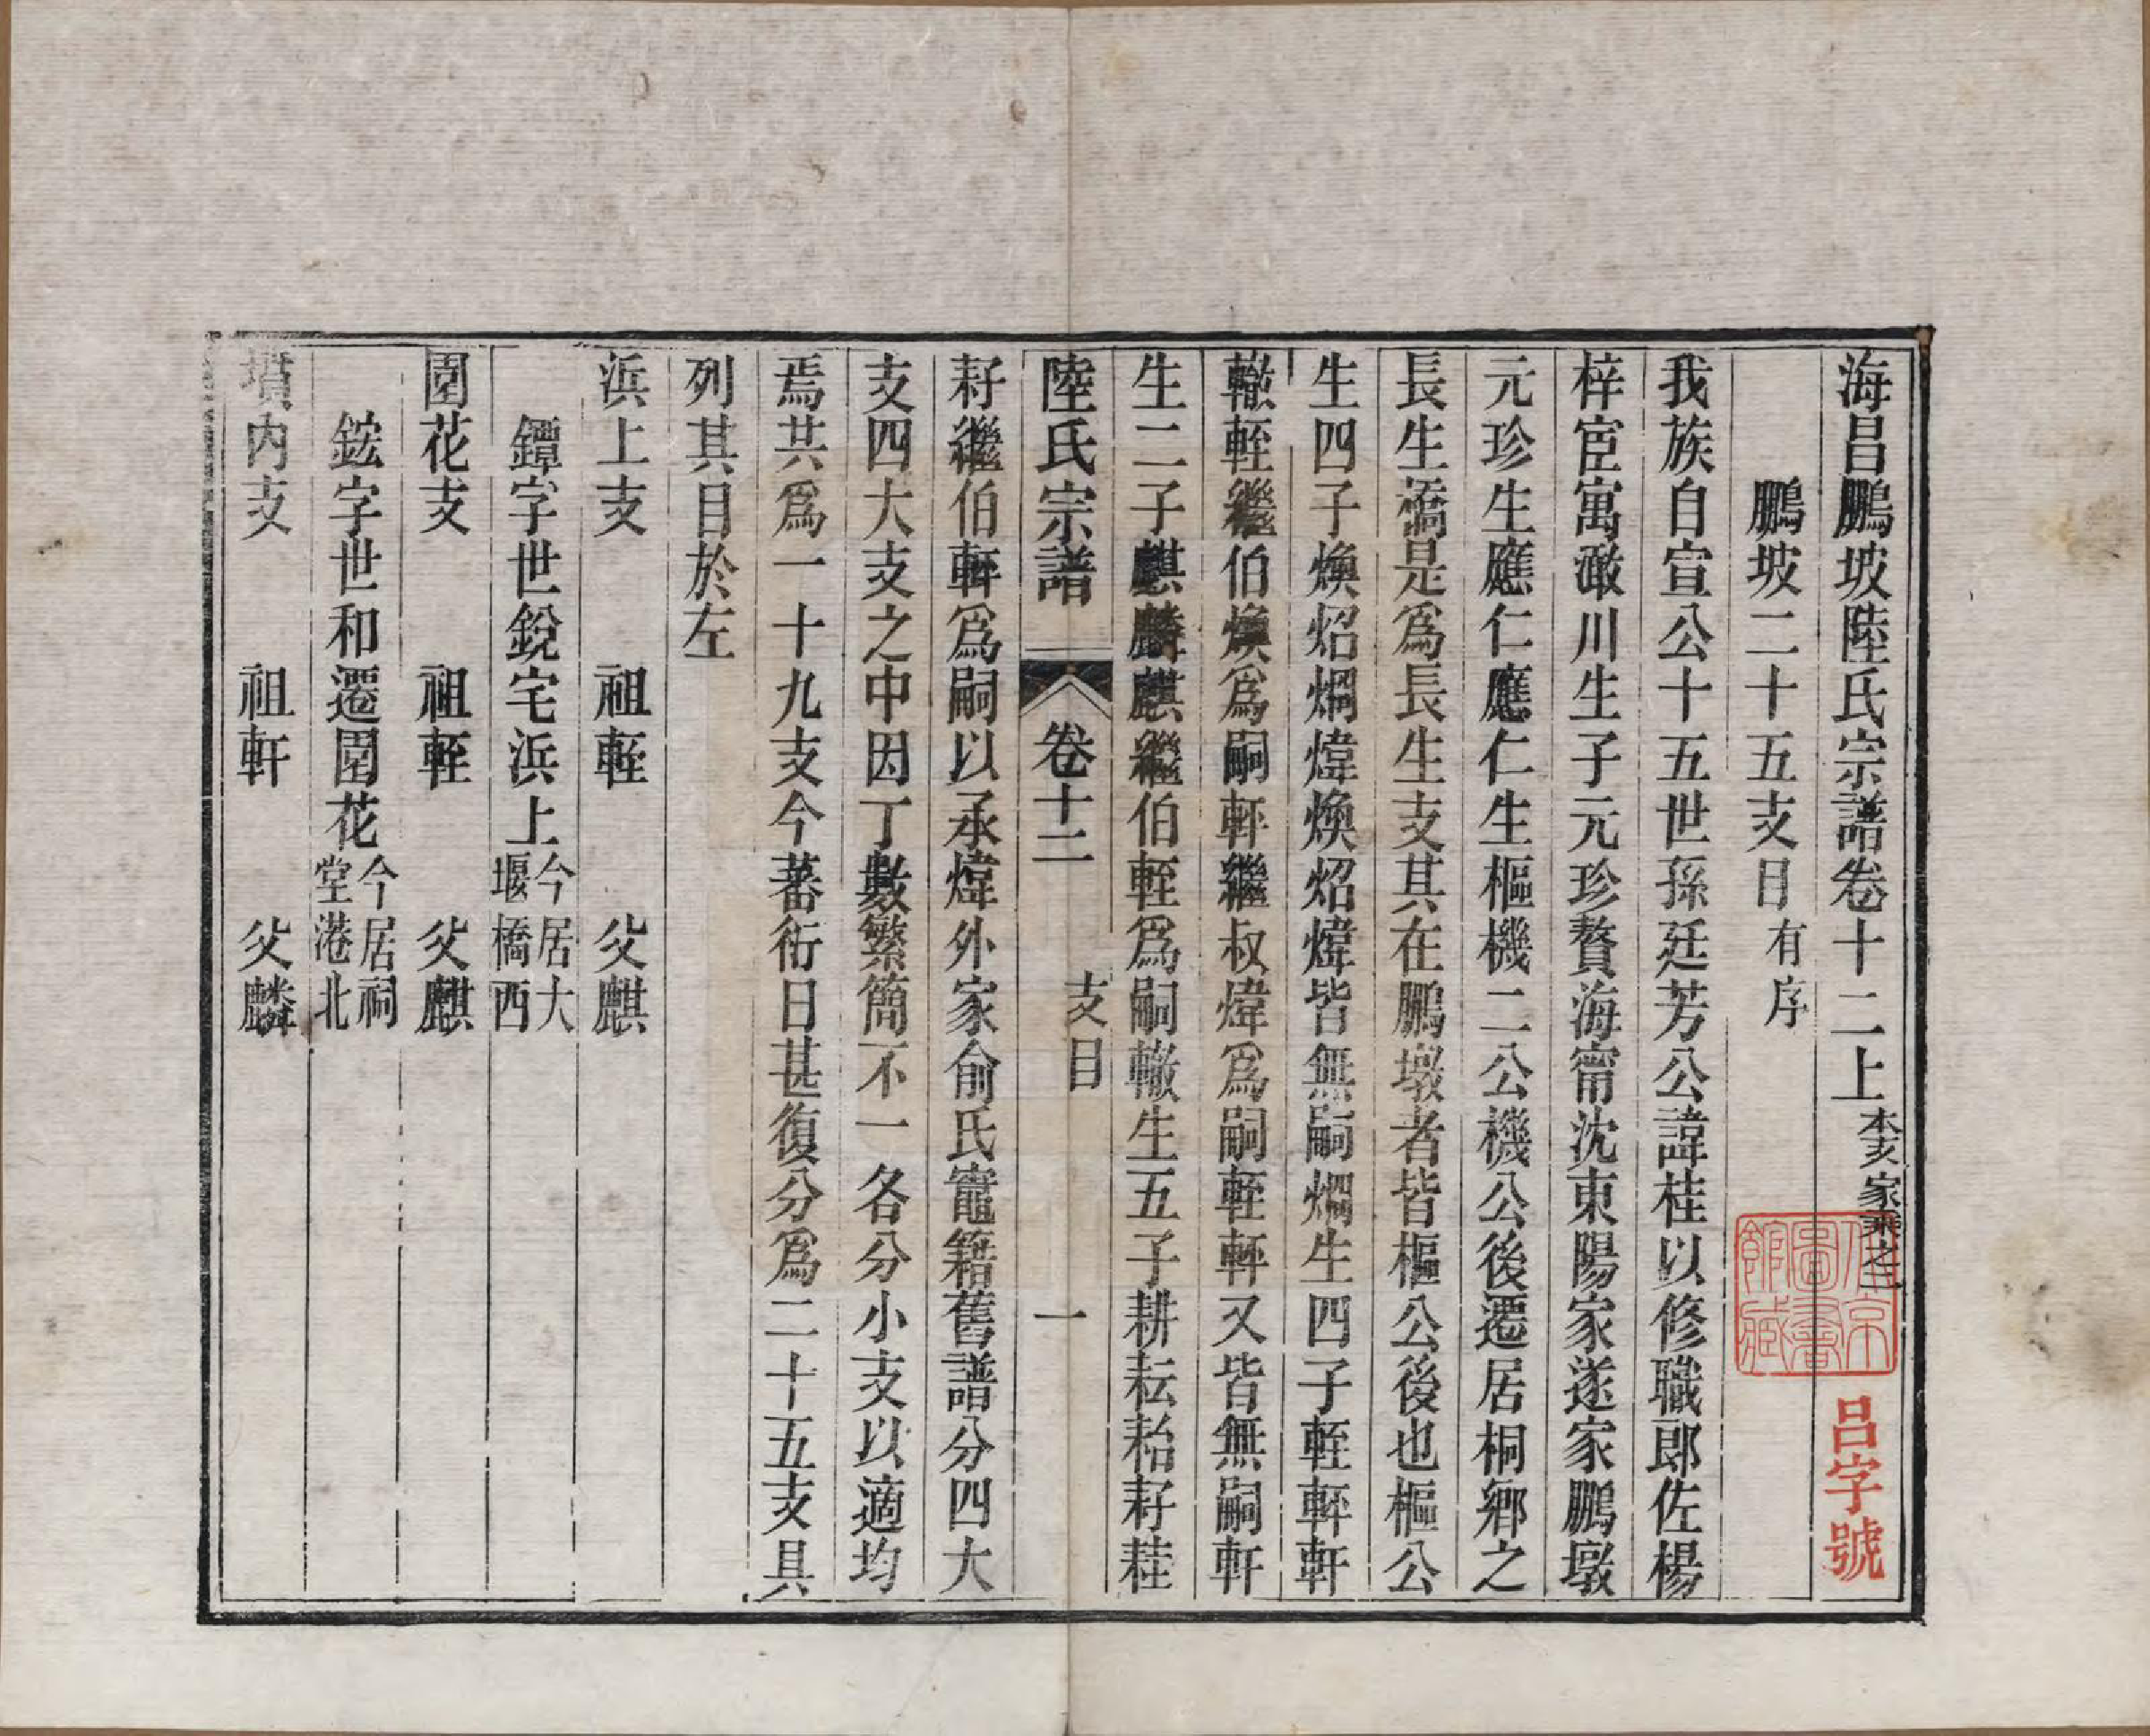 海昌鵬坡陸氏宗譜卷十二上 本支家乘之二
呂字號
鵬坡二十五支目 有序
我族自宣公十五世孫廷芳公諱桂以修職郎佐楊
梓宦寓澉川生子元珍贅海甯沈東陽家遂家鵬墩
元珍生應仁應仁生樞機二公機公後遷居桐鄉之
長生橋是爲長生支其在鵬墩者皆樞公後也樞公
生四子煥炤烱煒煥炤煒皆無嗣烱生四子輊軿軒
轍輊繼伯煥爲嗣軿繼叔煒爲嗣輊軿又皆無嗣軒
生二子麒麟麒繼伯輊爲嗣轍生五子耕耘耛耔䅅
陸氏宗譜 卷十二 支目 一
耔繼伯軿爲嗣以承煒外家俞氏竈籍舊譜分四大
支四大支之中因丁數繁簡不一各分小支以適均
焉共爲一十九支今蕃衍日甚復分爲二十五支具
列其目於左
浜上支 祖輊 父麒
鐔字世銳宅浜上 今居大堰橋西
園花支 祖輊 父麒
鋐字世和遷園花 今居祠堂港北
墳內支 祖軒 父麟